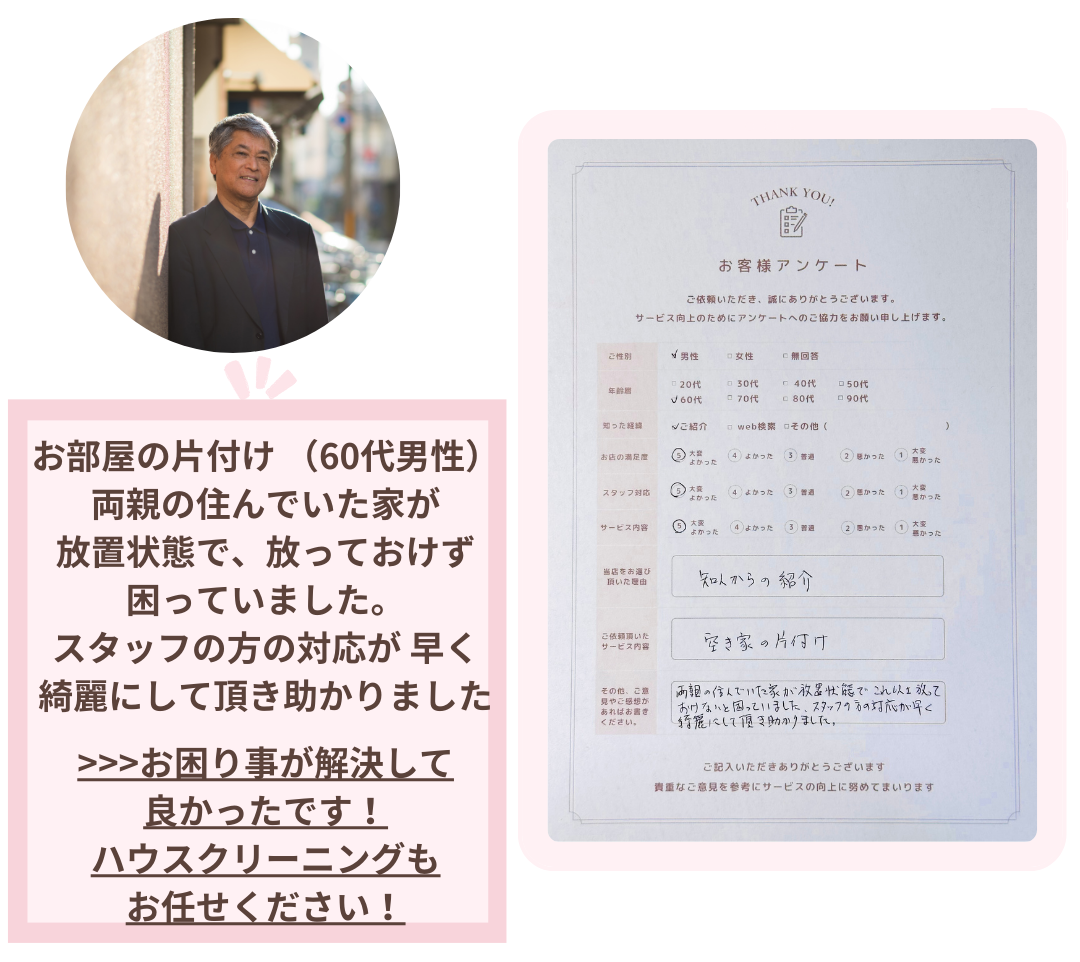 お部屋の片付け （60代男性）
両親の住んでいた家が
放置状態で、放っておけず
困っていました。
スタッフの方の対応が 早く
綺麗にして頂き助かりました
>>>お困り事が解決して
良かったです！
ハウスクリーニングも
お任せください！
THANK YOU!
お客様アンケート
ご依頼いただき、誠にありがとうございます。
サービス向上のためにアンケートへのご協力をお願い申し上げます。
ご性別 男性 女性 無回答
年齢層 20代 30代 40代 50代
60代 70代 80代 90代
知った経緯 ご紹介 web検索 その他（ ）
お店の満足度 5 大変よかった 4 よかった 3 普通 2 悪かった 1 大変悪かった
スタッフ対応 5 大変よかった 4 よかった 3 普通 2 悪かった 1 大変悪かった
サービス内容 5 大変よかった 4 よかった 3 普通 2 悪かった 1 大変悪かった
当店をお選び
頂いた理由
知人からの紹介
ご依頼頂いた
サービス内容
空き家の片付け
その他、ご意
見やご感想が
あればお書き
ください。
両親の住んでいた家が放置状態でこれ以上放って
おけないと困っていました。スタッフの方の対応が早く
綺麗にして頂き助かりました。
ご記入いただきありがとうございます
貴重なご意見を参考にサービスの向上に努めてまいります